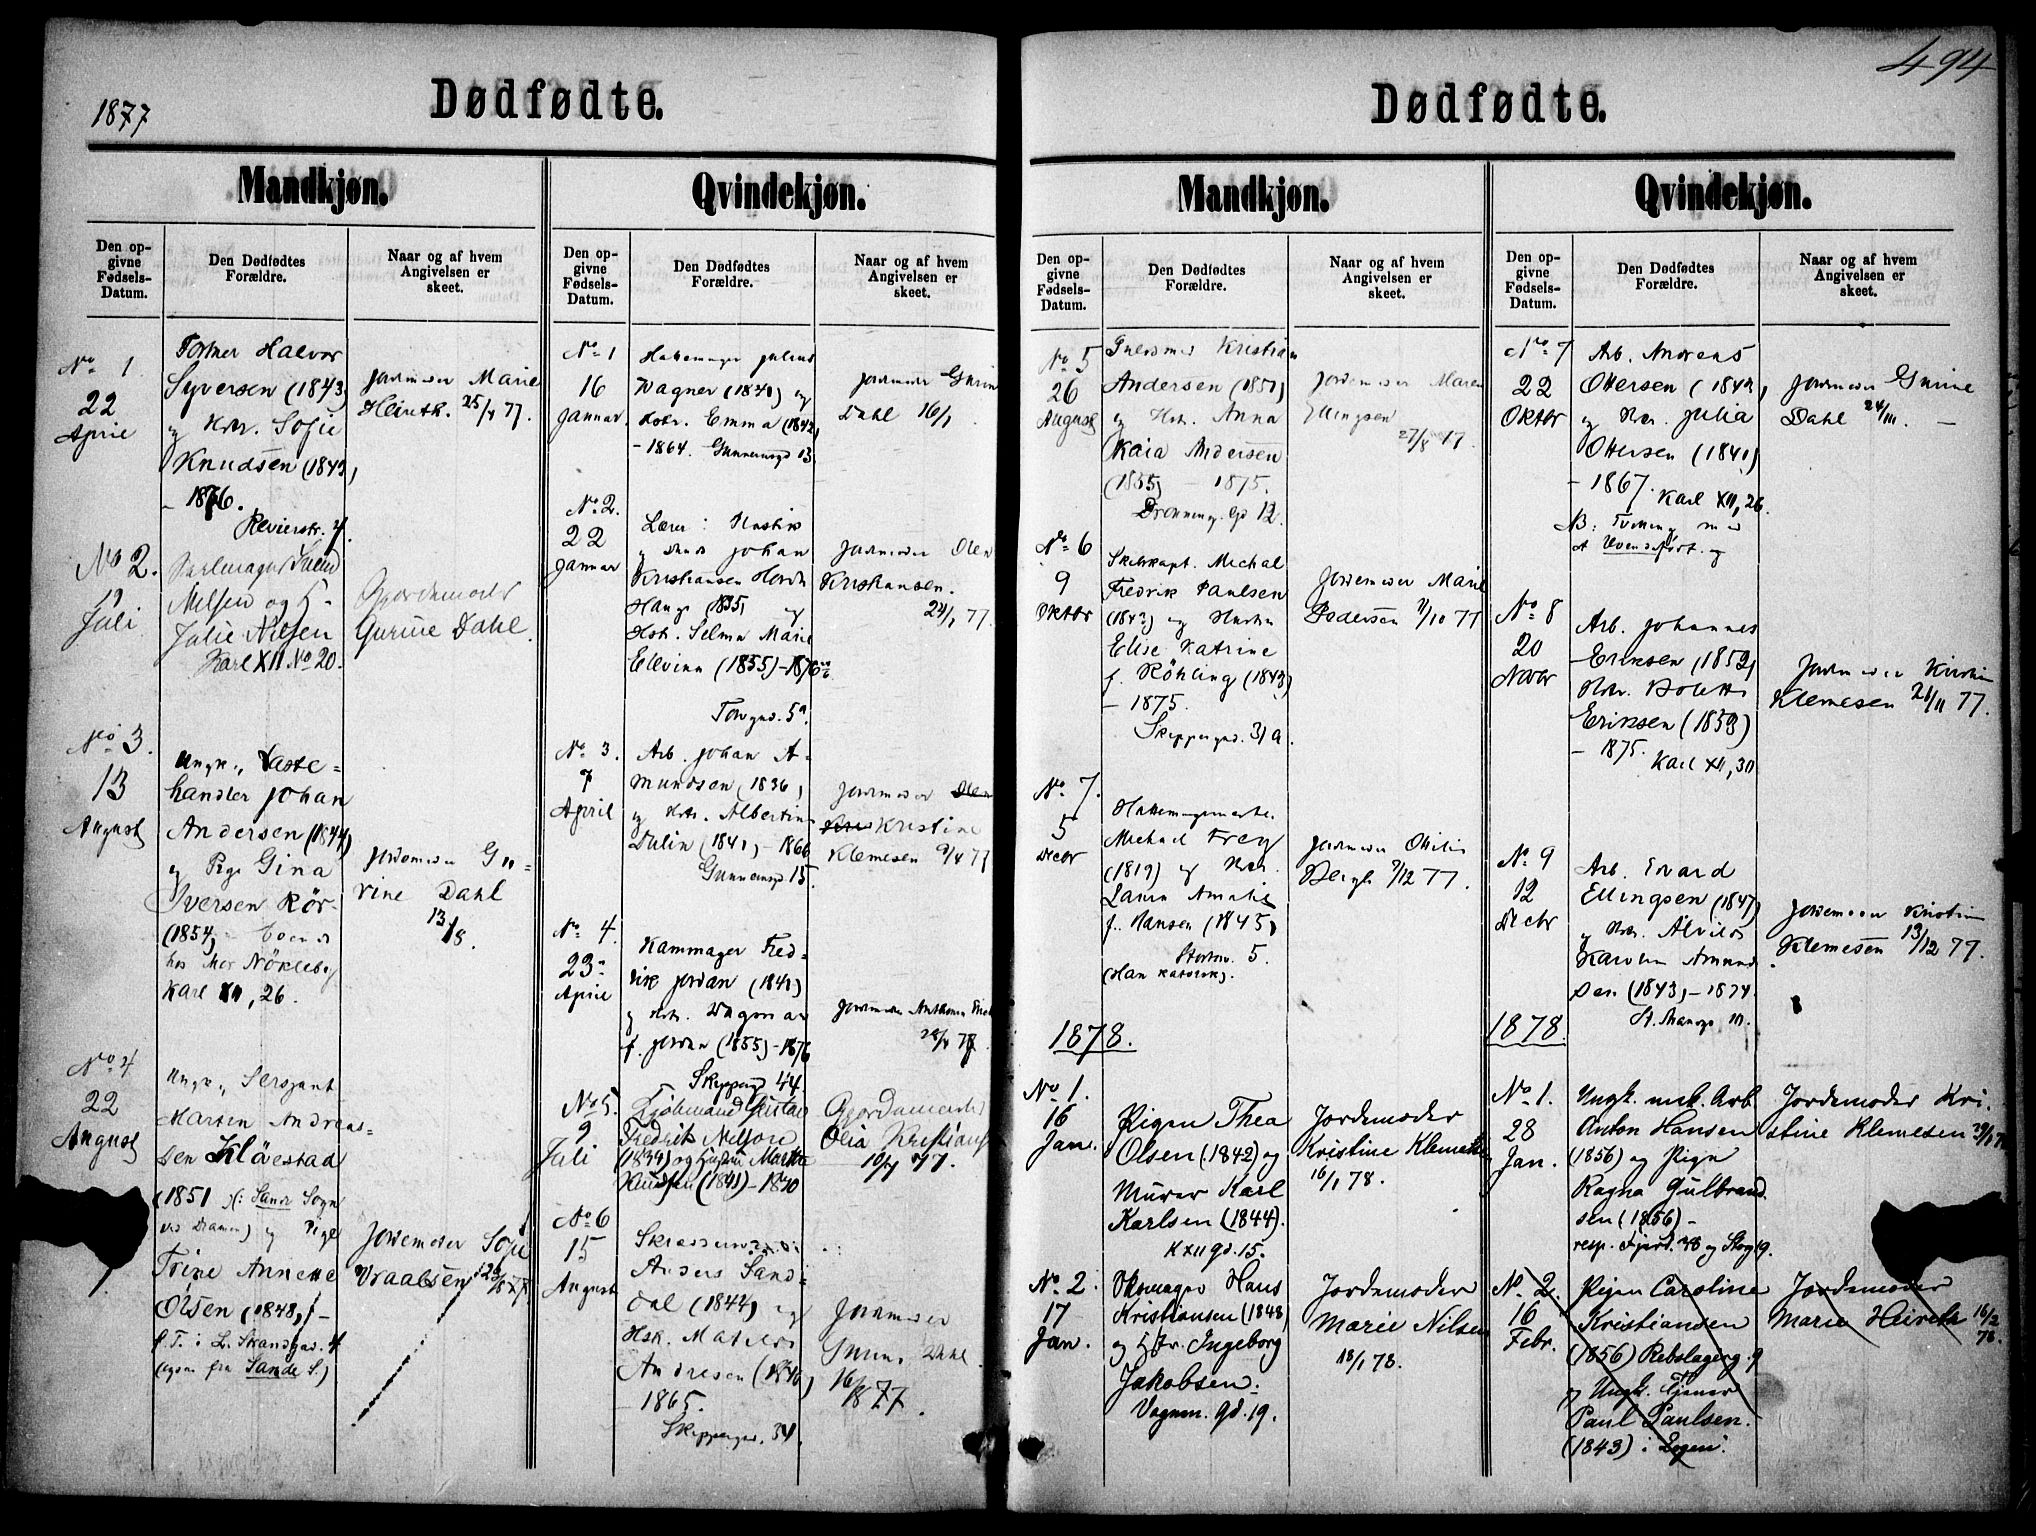 1877
Dødfødte.
Mandkjøn.
Den op-
givne
Fødsels-
Datum.
Den Dødfødtes
Forældre.
Naar og af hvem
Angivelsen er
skeet.
No 1.
22
April
Halvor
Syversen (1843)
og Hstr. Sofie
Knudsen (1843)
- 1876.
Revierstr. 4.
Jordemoder Marie
Heireth. 25/4 77.
No 2.
19
Juli
Nilsen og H.
Julie Nilsen
Karl XII No 20.
Gjordemoder
Gurine Dahl.
No 3.
13
August
Ungk.,
handler Johan
Andersen (1844)
og Pige Gina
Iversen Rör-
(1854)
hos Mor Nökleby
Karl XII, 26.
Jordemoder Gu-
rine Dahl
13/8.
No 4
22
August
Ungk., Sersjant
Marten Andreas-
sen Klöestad
(1851) (: Sande Sogn
ved Drammen) og Pige
Trine Annette
Olsen (1848) -
p. T. i L. Skandgad. 4
(ogsaa fra Sande S.)
Jordemoder Sofie
Vraalsen 23/8 77.
Qvindekjøn.
Den op-
givne
Fødsels-
Datum.
Den Dødfødtes
Forældre.
Naar og af hvem
Angivelsen er
skeet.
No 1
16
Januar
Hattemager Julius
Wagner (1840) og
Hstr. Emma (1842)
- 1864. Gunnersgd 13
Jordmoder Gurin
Dahl 16/1
No 2.
22
Januar
Lærer
Johan
Kristiansen
Hauge (1835) og
Hst. Selma Marie
Ellevine (1855) - 1876
Torvgd. 5a.
Jordmoder Olea
Kristiansen.
24/1 77.
No 3.
7
April
Arb. Johan A-
mundsen (1836)
og Hstr. Albertine
Dulin (1841) - 1866
Gunnersgd 15.
Jordmoder Olea
Kristine
Klemesen 9/4 77
No 4.
23
April
Kammager Fred-
rik Jordan (1840)
og Hstr. Dagmar
f. Jordan (1855) - 1876
Skippergd 44.
Jordmoder
28/4 77.
No 5.
9
Juli
Kjöbmand Gustav
Fredrik Nilsen
(1834) og Hustru Marthe
Knudsen (1841) - 1870
Gjordemoder
Olia Kristians
10/7 77.
No 6
15
August
Anders Sand-
dal (1844) og
Hsk. Matilde
Andresen (1840)
- 1865.
Skippergd. 34.
Jordmoder
Gurine Dahl.
16/8 77.
494
Dødfødte.
Mandkjøn.
Den op-
givne
Fødsels-
Datum.
Den Dødfødtes
Forældre.
Naar og af hvem
Angivelsen er
skeet.
No 5
26
August
Guldsmed Kristian
Andersen (1851)
og Hst. Anna
Kaia Andersen
(1855) - 1875.
Dronning. Gd 12.
Jordemoder Maren
Ellingsen
27/8 77.
No 6
9
Oktbr
Skibskapt. Michal
Fredrik Paulsen
(1842) og Hustru
Elise Katrine
f. Röhling (1843)
- 1875.
Skippergad. 31a.
Jordemoder Marie
Pedersen 11/10 77
No 7.
5
Decbr
Hattemagermester
Michael Frey
(1819) og Hstr.
Laura Amalie
f. Hansen (1845)
Storstr. 5.
(Han katolsk).
Jordmoder Othilie
Bergh 7/12 77.
1878.
No 1.
16
Jan.
Pigen Thea
Olsen (1842) og
Murer Karl
Karlsen (1844).
K XII gd. 15.
Jordemoder
Kristine Klemetsen
16/1 78.
No 2.
17
Jan.
Hans
Kristiansen (1848)
og Hstr. Ingeborg
Jakobsen.
Vognm. gd. 19.
Jordemoder
Marie Nilsen
18/1 78.
Qvindekjøn.
Den op-
givne
Fødsels-
Datum.
Den Dødfødtes
Forældre.
Naar og af hvem
Angivelsen er
skeet.
No 7
22
Oktbr
Arb. Andreas
Ottersen (1842)
og Hstr. Julia
Ottersen (1840)
- 1867. Karl XII, 26.
NB: Tvilling med
et levendefödt. og
Jordmoder Gurine
Dahl 24/11.
No 8
20
Novbr
Arb. Johannes
Eriksen (1852)
Hstr. Bolette
Eriksen (1853)
- 1875. Karl XII, 30
Jordmoder Kristin
Klemesen 21/11 77.
No 9
12
Decbr
Arb. Evard
Ellingsen (1847)
og Hstr. Alvilde
Karoline Amund-
sen (1843) - 1874.
St. Mariegd 10.
Jordemoder Kristin
Klemesen 13/12 77.
1878.
No 1.
28
Jan.
Ungk. mek. Arb.
Anton Hansen
(1856) og Pigen
Ragna Gulbrand-
sen (1856) -
resp. Fjerd. 38 og Storg 19.
Jordemoder Kri-
stine Klemesen 29/1 78
No 2.
16
Febr.
Pigen Caroline
Kristiansen
(1856) Rebslagerg. 9
og Ungk. Tjener
Paul Paulsen.
(1843) i
Jordemoder
Marie Heireth 16/2
78.